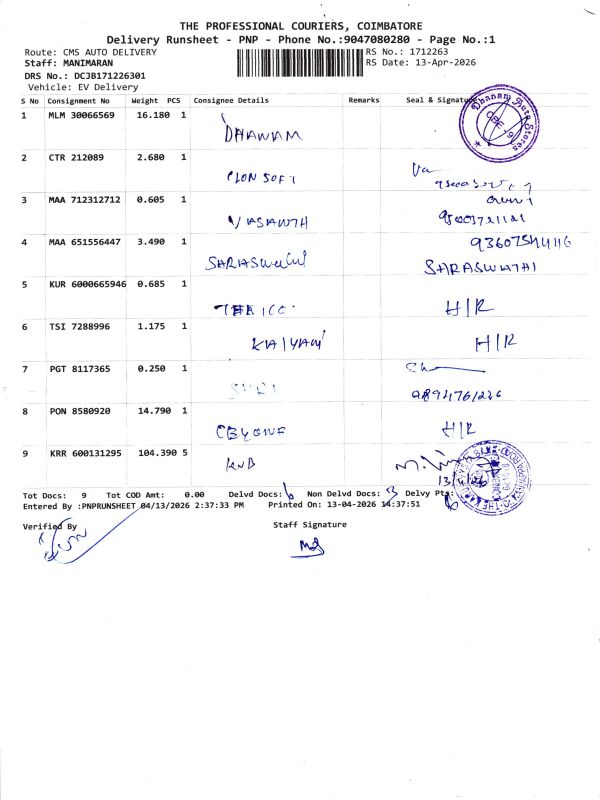 THE PROFESSIONAL COURIERS, COIMBATORE
Delivery Runsheet - PNP - Phone No.:9047080280 - Page No.:1
Route: CMS AUTO DELIVERY RS No.: 1712263
Staff: MANIMARAN RS Date: 13-Apr-2026
DRS No.: DCJB171226301
Vehicle: EV Delivery
S No Consignment No Weight PCS Consignee Details Remarks Seal & Signature
1 MLM 30066569 16.180 1
DHANAM Dhanam Auto Stores
2 CTR 212089 2.680 1
3 MAA 712312712 0.605 1
VASANTH
4 MAA 651556447 3.490 1
SARASWATHI
5 KUR 6000665946 0.685 1
H/R
6 TSI 7288996 1.175 1
KALYANI H/R
7 PGT 8117365 0.250 1
8 PON 8580920 14.790 1
H/R
9 KRR 600131295 104.390 5
KNB
Tot Docs: 9 Tot COD Amt: 0.00 Delvd Docs: 6 Non Delvd Docs: 3 Delvy Pts: 6
Entered By :PNPRUNSHEET 04/13/2026 2:37:33 PM Printed On: 13-04-2026 14:37:51
Verified By Staff Signature